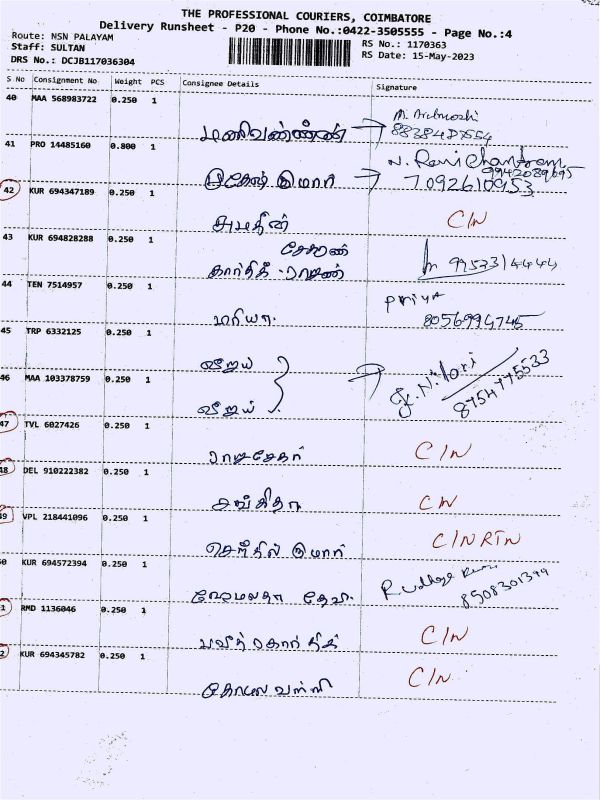 THE PROFESSIONAL COURIERS, COIMBATORE
Delivery Runsheet - P20 - Phone No.:0422-3505555 - Page No.:4
Route: NSN PALAYAM
Staff: SULTAN
DRS No.: DCJB117036304
RS No.: 1170363
RS Date: 15-May-2023
S No Consignment No Weight PCS Consignee Details Signature
40 MAA 568983722 0.250 1
மணிவண்ணன்
41 PRO 14485160 0.800 1
மகேஷ் குமார் N. Ravichandran
7092610953
42 KUR 694347189 0.250 1
C/N
43 KUR 694828288 0.250 1
கார்த்திக்
44 TEN 7514957 0.250 1
மரியா. Priya
8056994745
45 TRP 6332125 0.250 1
விஜய்
46 MAA 103378759 0.250 1
விஜய் 8754775533
47 TVL 6027426 0.250 1
ராஜசேகர் C/N
48 DEL 910222382 0.250 1
சங்கீதா C/N
49 VPL 218441096 0.250 1
செந்தில் குமார் C/N RTN
0 KUR 694572394 0.250 1
ஹேமலதா தேவி. 8508301399
1 RMD 1136046 0.250 1
பவித்ரகார்த்திக் C/N
2 KUR 694345782 0.250 1
கோமலவள்ளி C/N